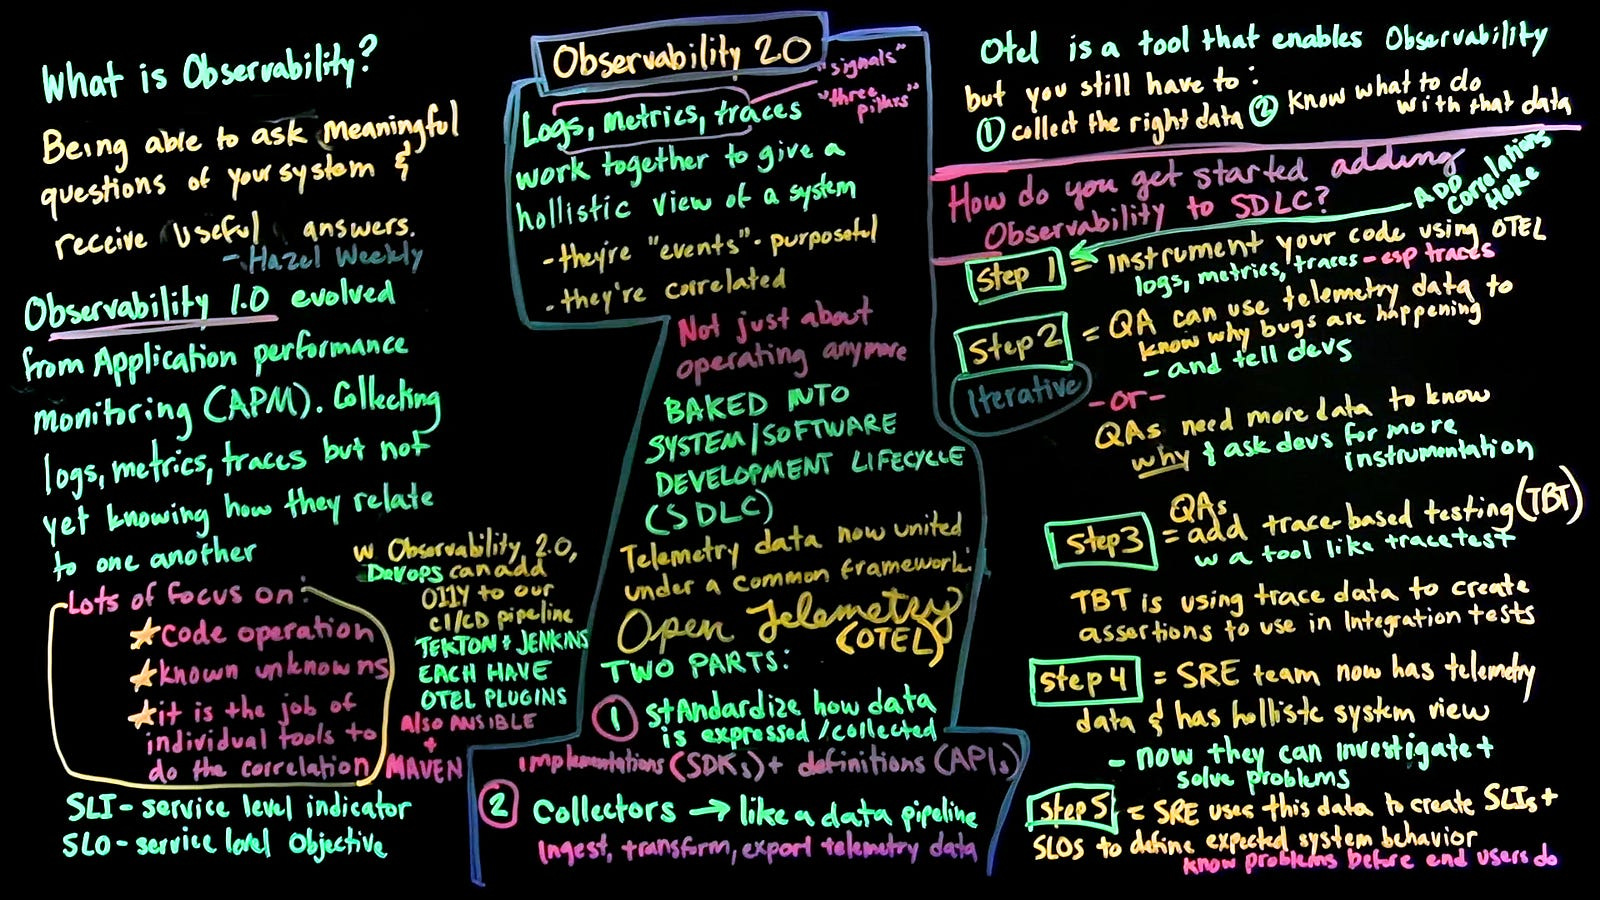 What is Observability?
Being able to ask meaningful
questions of your system &
receive useful answers.
- Hazel Weekly
Observability 1.0 evolved
from Application performance
monitoring (APM). Collecting
logs, metrics, traces but not
yet knowing how they relate
to one another
Lots of focus on:
code operation
known unknowns
it is the job of
individual tools to
do the correlation
SLI - service level indicator
SLO - service level Objective
w Observability 2.0,
DevOps can add
O11Y to our
CI/CD pipeline
TEKTON + JENKINS
EACH HAVE
OTEL PLUGINS
Also ANSIBLE
+
MAVEN
Observability 2.0
"signals"
"three
pillars"
Logs, metrics, traces
work together to give a
hollistic view of a system
- they're "events" - purposeful
- they're correlated
Not just about
operating anymore
BAKED INTO
SYSTEM/SOFTWARE
DEVELOPMENT LIFECYCLE
(SDLC)
Telemetry data now united
under a common framework:
Open Telemetry
(OTEL)
TWO PARTS:
1 stAndardize how data
is expressed/collected
implementations (SDKs) + definitions (APIs)
2 Collectors → like a data pipeline
Ingest, transform, export telemetry data
Otel is a tool that enables Observability
but you still have to:
1 collect the right data 2 Know what to do
with that data
How do you get started adding
Observability to SDLC?
ADD
correlations
HeRe
Step 1 = instrument your code using OTEL
logs, metrics, traces - esp traces
Step 2 = QA can use telemetry data to
know why bugs are happening
- and tell devs
Iterative
- or -
QAs need more data to know
why & ask devs for more
instrumentation
Step 3 = QAs
add trace-based testing (TBT)
w a tool like tracetest
TBT is using trace data to create
assertions to use in Integration tests
Step 4 = SRE team now has telemetry
data & has hollistc system view
- now they can investigate +
solve problems
Step 5 = SRE uses this data to create SLIs +
SLOs to define expected system behavior
know problems before end users do